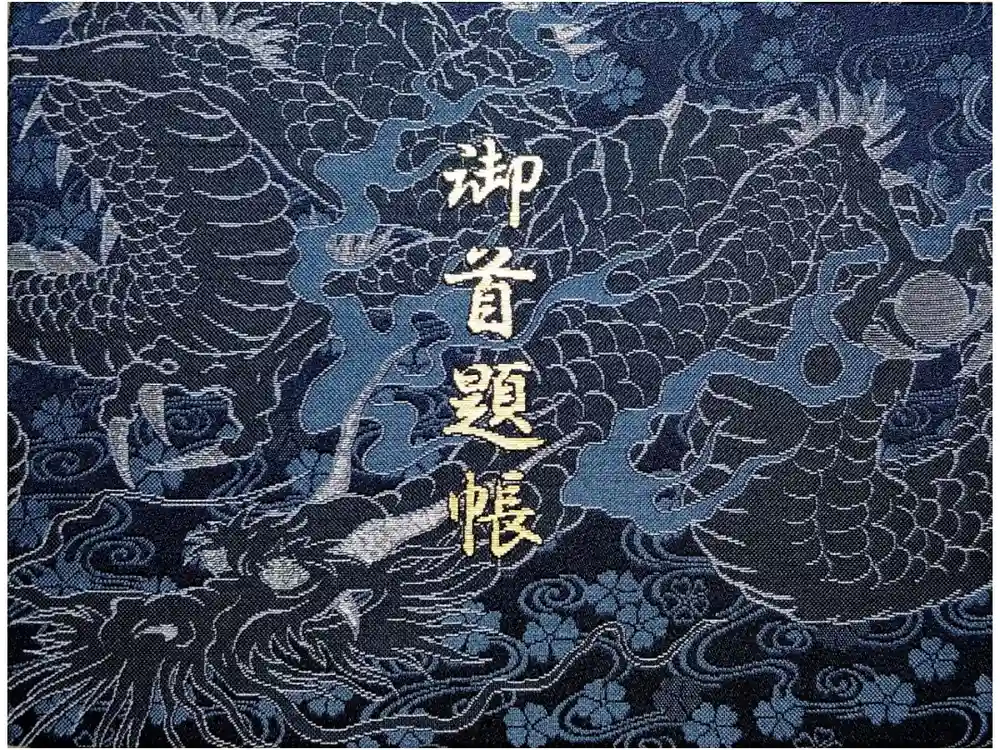 御首題帳